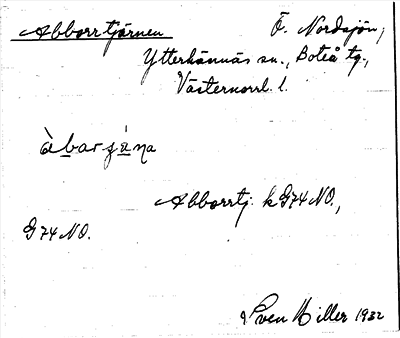 Abborrtjärnen Ö. Nordsjön,
Ytterlännäs sn., Boteå tg.,
Västernorrl. l.
àbarʒa̱ṇa
Abborrtj. k G74NO.,
G74NO.
Sven Hiller 1932